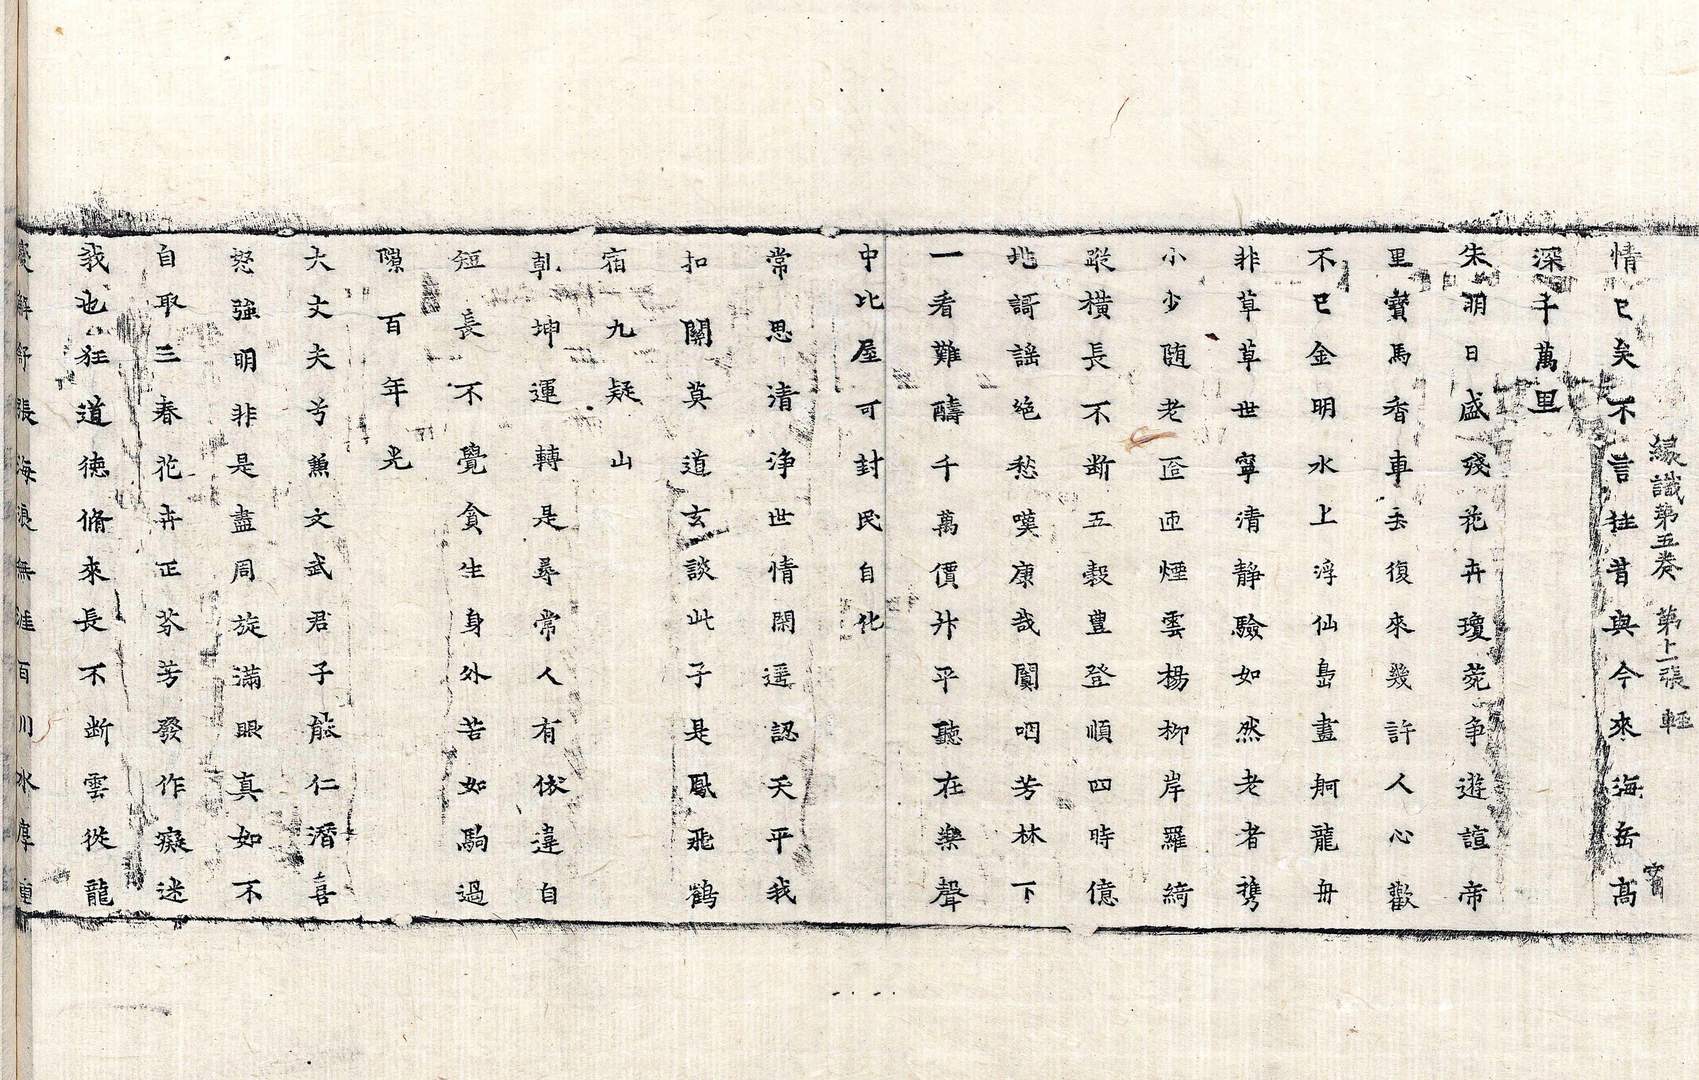 情已矣不言往昔與今來海岳高
緣識第五卷 第十一張 輕
深千萬里
朱明日盛殘花卉瓊菀争遊諠帝
里寳馬香車去復來幾許人心歡
不已金明水上浮仙島畫舸龍舟
非草草世寧清静驗如然老者携
小少随老匝匝煙雲楊柳岸羅綺
蹤横長不断五穀豊登順四時億
兆謌謡絶愁嘆康哉闐咽芳林下
一看難酬千萬價升平聽在樂聲
中比屋可封民自化
常思清浄世情閑遥認天平我
扣關莫道玄談此子是鳳飛鶴
宿九疑山
乹坤運轉是尋常人有依違自
短長不覺貪生身外苦如駒過
隙百年光
大丈夫兮兼文武君子能仁潛喜
怒強明非是盡周旋滿眼真如不
自取三春花卉正芬芳發作癡迷
我也狂道徳脩來長不断雲從龍
舒張海浪無涯百川水